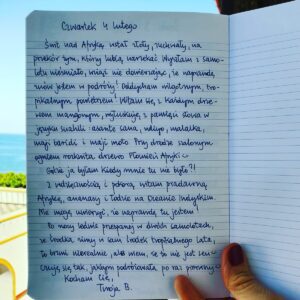 Czwartek 4 lutego
Świt nad Afryką wstał złoty, rozchwiany, na
przekór tym, którzy lubią narzekać. Wyszłam z samo-
lotu nieśmiało, wciąż nie dowierzając, że naprawdę
znów jestem w podróży! Oddycham wilgotnym, tro-
pikalnym powietrzem! Witam się z każdym drze-
wem mangowym, wyłuskuję z pamięci słowa w
języku suahili: asante sana, ndiyo, malaika,
maji baridi i maji moto. Przy drodze szalonym
ogniem rozkwita drzewo Płomień Afryki
Gdzie ja byłam kiedy mnie tu nie było?!
Z wdzięcznością i pokorą witam pradawną
Afrykę, ananasy i łodzie na Oceanie Indyjskim.
Nie mogę uwierzyć, że naprawdę tu jestem
Po nocy ledwie przespanej w dwóch samolotach,
ze środka zimy w sam środek tropikalnego lata,
to brzmi nierealnie, ale wiem, że to nie jest sen
czuję się tak, jakbym podróżowała po raz pierwszy
Kocham Cię,
Twoja B.